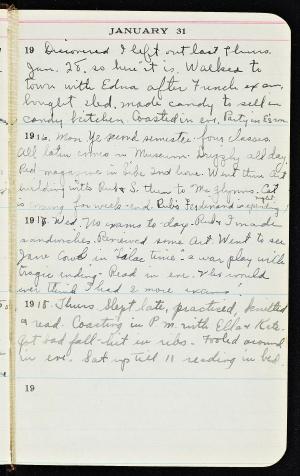 JANUARY 31
19 Discovered I left out last Thurs.
Jan. 28, so here it is. Walked to
town with Edna after French exam,
bought sled, made candy to sell in
candy kitchen. Coasted in eve. Party in Gym
1916. Mon. Ye second semester - four classes.
All latin comes in Museum. Drizzly all day.
Read magazines in Libe 2nd hour. Went thru Art
building with Rub & S. then to
is coming for week-end. Rub's Ferdinand is
1917. Wed. No exams to-day. Rub & I made
sandwiches. Reviewed some Art. Went to see
Jane Cowl in "Lilac time", a war play with
tragic ending. Read in eve. Who would
ever think I had 2 more exams!
1918. Thurs. Slept late, practised, knitted
& read. Coasting in P.M. with Ella & Kate.
Got bad fall - hit in ribs. Fooled around
in eve. Sat up till 11 reading in bed.
19